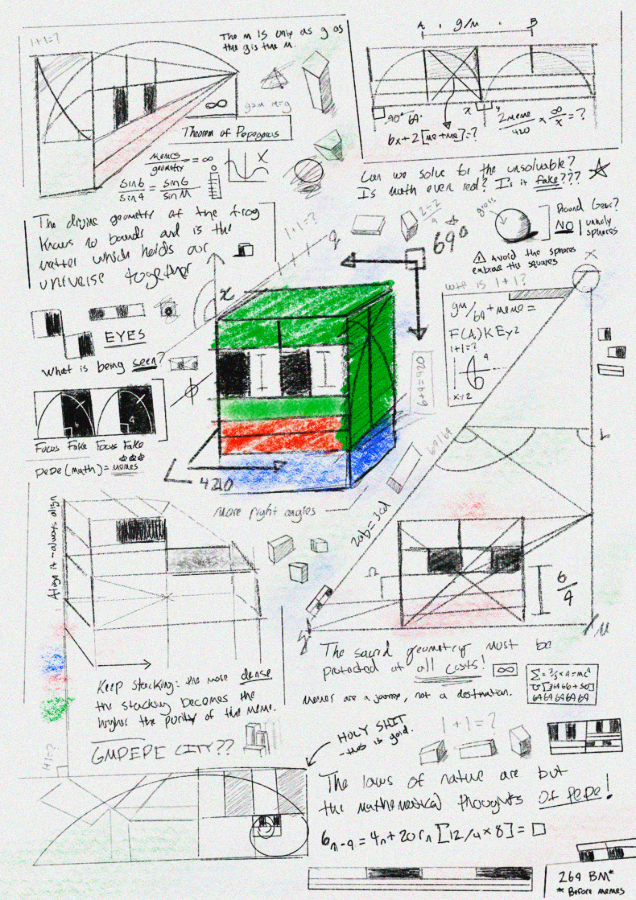 1+1=?
The M is only as g as
the g is the M
∞
gum 11=g
Theorem of Pepegorus
memes/geometry = ∞
sin6/sin4 = sin6/sinM
A . g/m . B
90° 69°
x
6x+2[me+me]=?
2meme/420 x ∞/x =?
Can we solve for the unsolvable?
Is math even real? Is it fake???
The divine geometry of the frog
knows no bounds and is the
matter which holds our
universe together
1+1=?
2=2
69°
gross
Round Gear?
NO unholy spheres
⚠ Avoid the spheres
embrace the squares
wtf is 1+1?
gm/69 + meme =
F(A)KEy2
1+1=?
x=2
x
q
x
EYES
What is being seen?
Focus Fake Focus Fake
pepe(math)=memes
6+4=420
4210
69/69
b
2ab=3cd
More right angles
Align it - always align
Ω
6/4
g
M
Keep stacking: the more dense
the stacking becomes the
higher the purity of the meme.
GMPEPE CITY??
The sacred geometry must be
protected at all costs!
∞
memes are a journey, not a destination.
69 69 69 69 69
HOLY SHIT
- this is good.
1+1=?
The laws of nature are but
the mathematical thoughts of Pepe!
6n-9 = 4n+20rn [12/4x8] = □
269 BM*
* Before memes